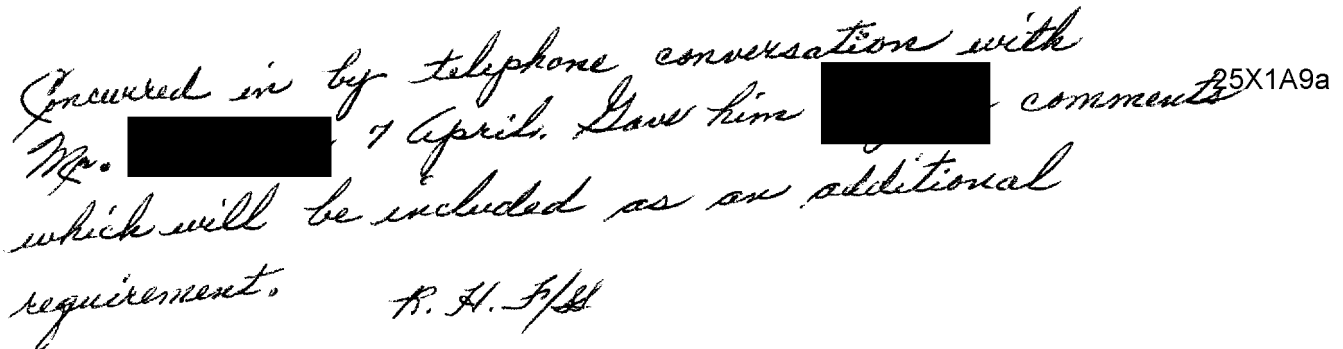 Concurred in by telephone conversation with
25X1A9a
Mr. 7 April. Gave him comments
which will be included as an additional
requirement.
R. H. F/